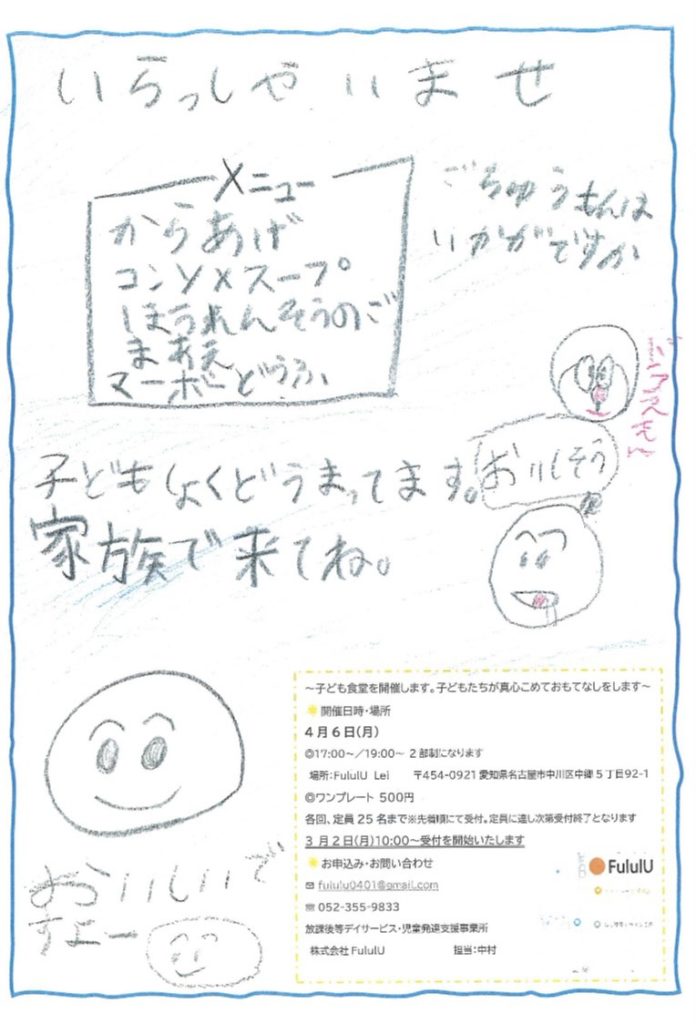 いらっしゃいませ
メニュー
からあげ
コンソメスープ
ほうれんそうのご
まあえ
マーボーどうふ
ごちゅうもんは
いかがですか
おいしそう
子どもしょくどうまってます。
家族で来てね。
おいしいで
すよー
～子ども食堂を開催します。子どもたちが真心こめておもてなしをします～
開催日時・場所
4月6日(月)
◎17:00～／19:00～ 2部制になります
場所：FululU Lei 〒454-0921 愛知県名古屋市中川区中郷5丁目92-1
◎ワンプレート 500円
各回、定員25名まで※先着順にて受付。定員に達し次第受付終了となります
3月2日(月)10:00～受付を開始いたします
お申込み・お問い合わせ
✉ fululu0401@gmail.com
☎ 052-355-9833
放課後等デイサービス・児童発達支援事業所
株式会社FululU 担当：中村
FululU